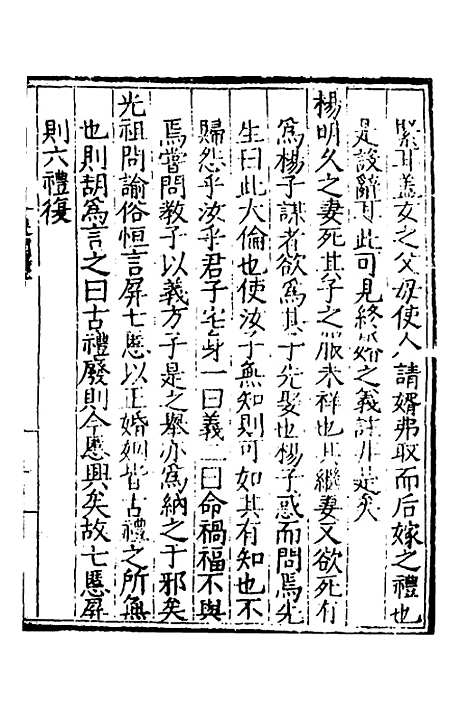 蓋女之父母使人請婿弗取而后嫁之禮也
是設辭耳此可見終㫺婚之義註非是矣
楊明久之妻死其子之服未祥也其繼妻又欲死有
為楊子謀者欲為其子先娶也楊子惑而問焉先
生曰此大倫也使汝子無知則可如其有知也不
歸怨乎汝乎君子宅身一曰義一曰命禍福不與
焉嘗問教子以義方子是之舉亦為納之于邪矣
光祖問諭俗恒言屏七慝以正婚姻皆古禮之所無
也則胡為言之曰古禮廢則今慝興矣故七慝屏
則六禮復